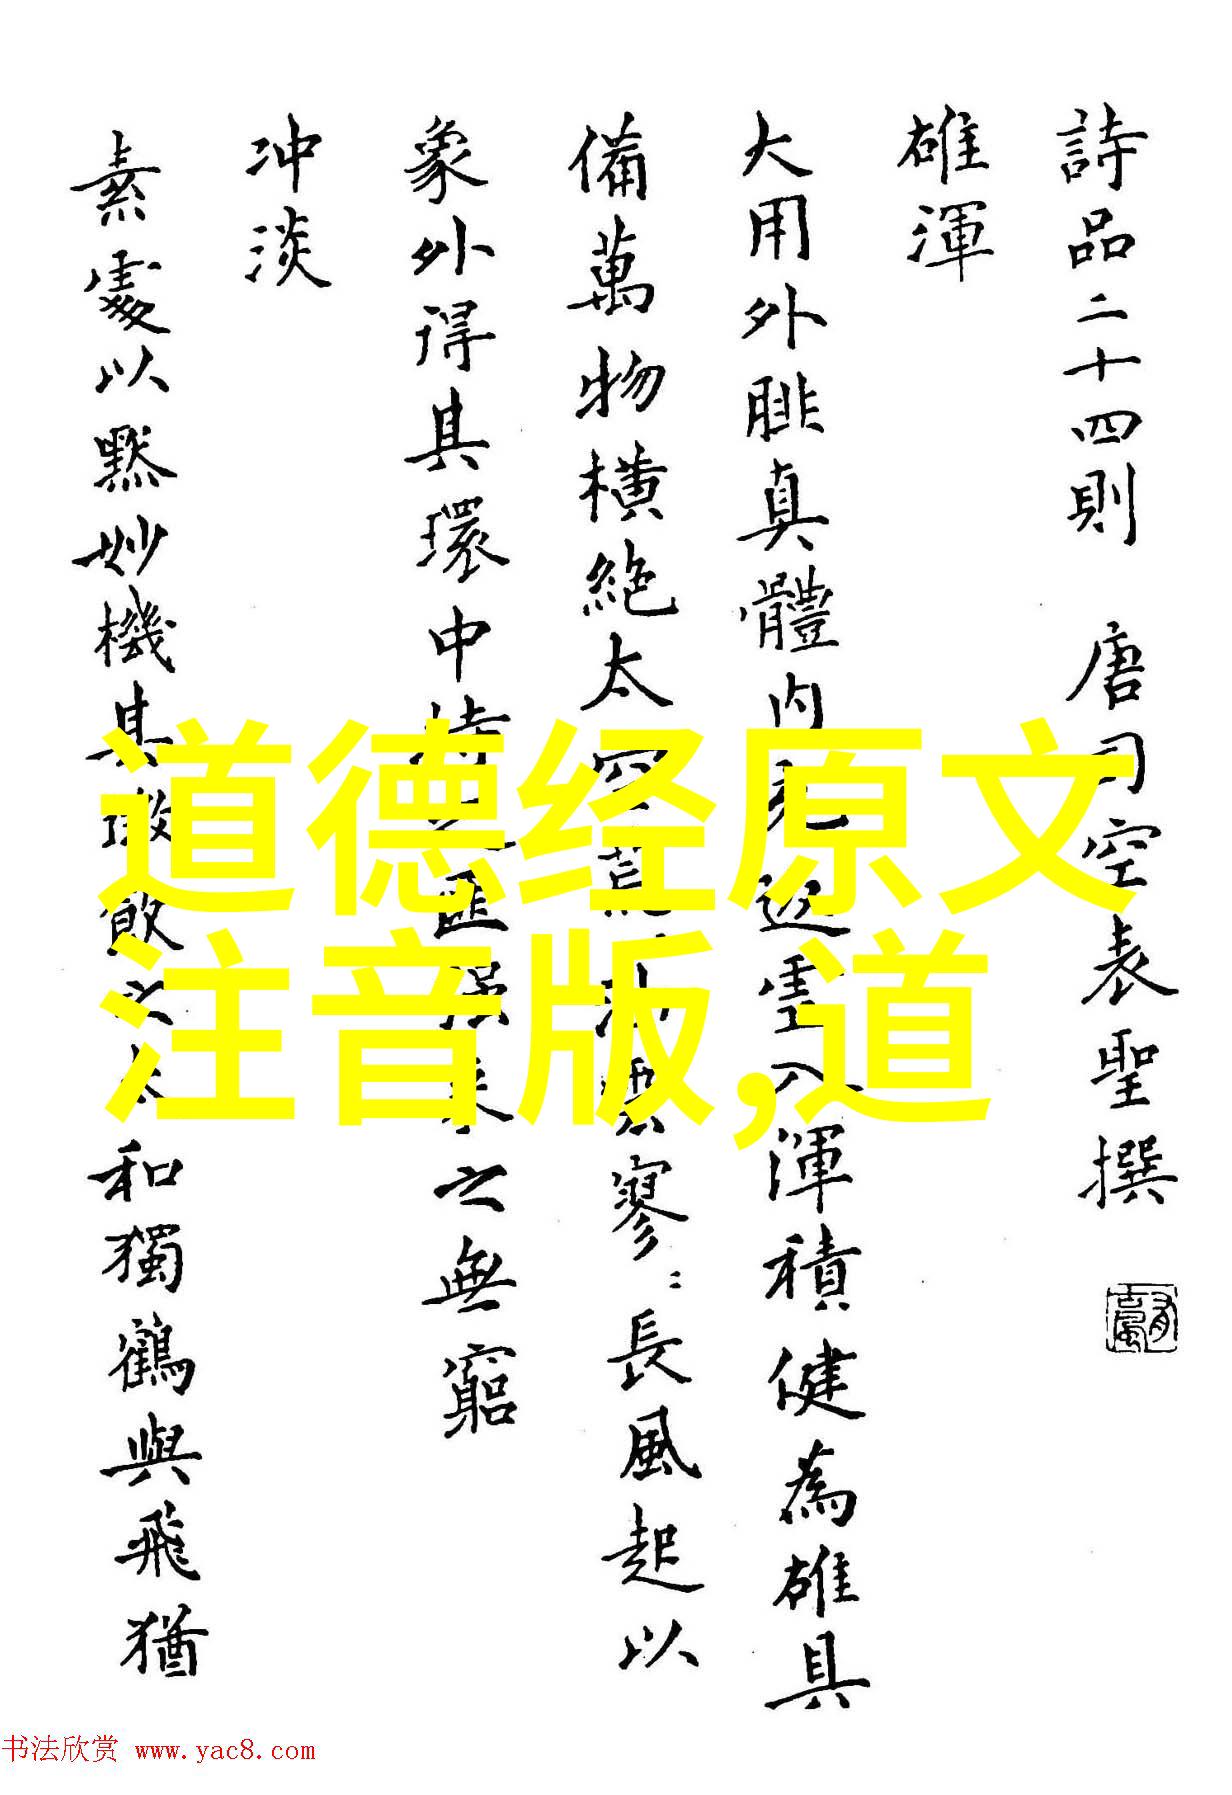 詩品二十四則 唐司空表聖撰
雄渾
大用外腓真體内充返虛入渾積健為雄具
備萬物橫絶太空荒油雲寥〻長風起以
象外得其環中持之匪强来之無窮
冲淡
素處以默妙機其微飲之太和獨鶴與飛猶
道德经原文
注音版,道
书法欣赏 www.yac8.com